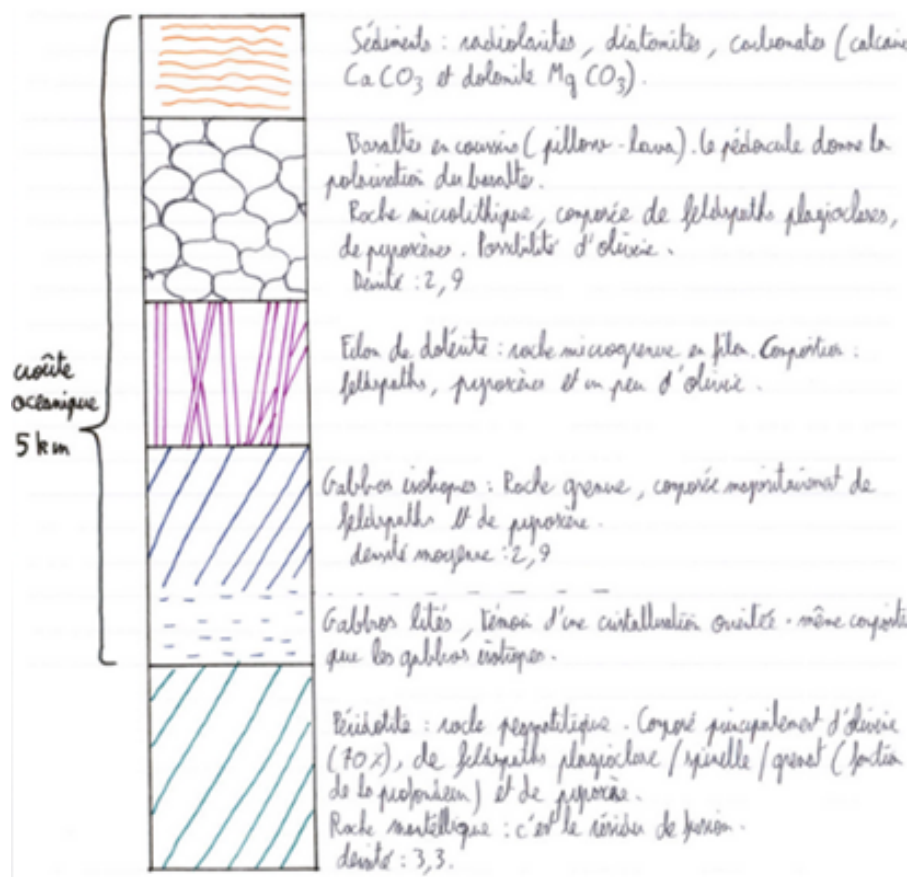 Sédiments : radiolarites, diatomites, carbonates (calcaire
CaCO3 et dolomite MgCO3).
Basaltes en coussins (pillow-lava). le pédoncule donne la
polarisation du basalte.
Roche microlithique, composée de feldspaths plagioclases,
de pyroxènes. Possibilité d'olivine.
Densité : 2,9
Filon de dolérite : roche microgrenue en filon. Composition :
feldspaths, pyroxènes et un peu d'olivine.
croûte
océanique
5 km
Gabbros isotropes : Roche grenue, composée majoritairement de
feldspaths et de pyroxène.
densité moyenne : 2,9
Gabbros lités, témoin d'une cristallisation orientée - même
que les gabbros isotropes.
Péridotite : roche pegmatitique. Composé principalement d'olivine
(70%), de feldspaths plagioclase / spinelle / grenat (fonction
de la profondeur) et de pyroxène.
Roche mantellique : c'est le résidu de fusion.
densité : 3,3.